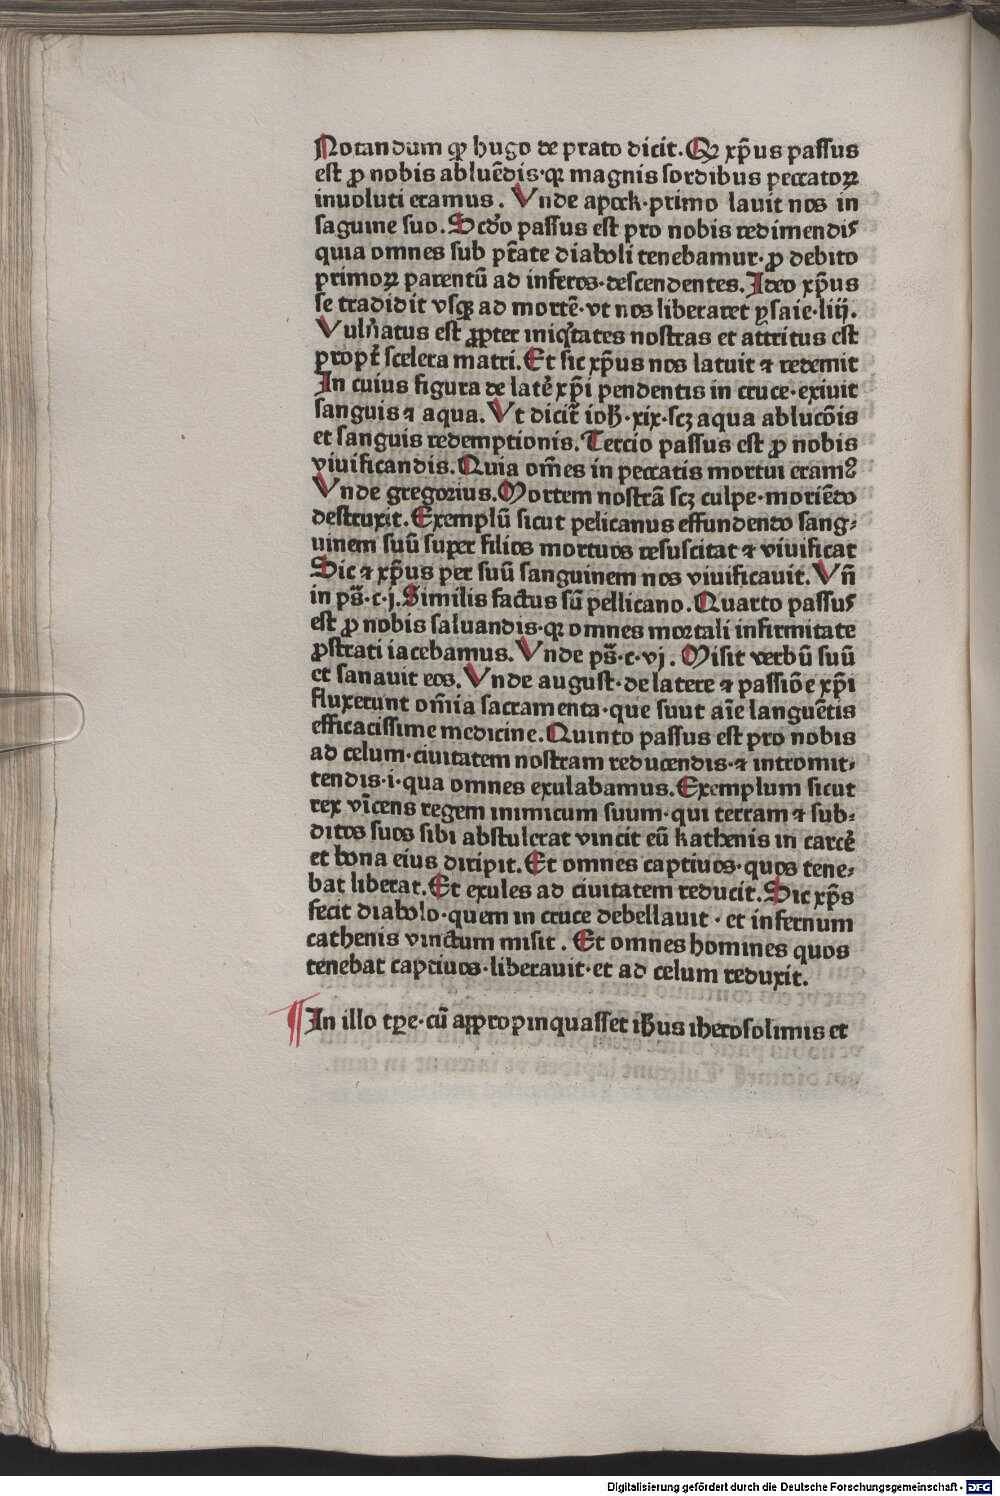 Notandum ꝙ hugo de prato dicit. Qꝫ xp̄us passus
est ꝓ nobis abluēdis·qꝛ magnis sordibus peccatoꝝ
inuoluti eramus. Vnde apock·primo lauit nos in
saguine suo. Scd̄o passus est pro nobis redimendis
quia omnes sub pt̄ate diaboli tenebamur·ꝓ debito
primoꝝ parentū ad inferos·descendentes. Ideo xp̄us
se tradidit vsqꝫ ad mortē·vt nos liberaret ysaie·liij.
Vuln̄atus est ꝓpter iniqͥtates nostras et attritus est
propt̄ scelera matri. Et sic xp̄us nos lauit ⁊ redemit
In cuius figura de latē xp̄i pendentis in cruce·exiuit
sanguis ⁊ aqua. Vt dicit̄ ioh̄·xix·scꝫ aqua ablucōis
et sanguis redemptionis. Tercio passus est ꝓ nobis
viuificandis. Quia om̄es in peccatis mortui eramꝰ
Vnde gregorius. Mortem nostrā scꝫ culpe·moriēdo
destruxit. Exemplū sicut pelicanus effundendo sang⸗
uinem suū super filios mortuos resuscitat ⁊ viuificat
Sic ⁊ xp̄us per suū sanguinem nos viuificauit. Vn̄
in ps̄·c·j. Similis factus sū pellicano. Quarto passus
est ꝓ nobis saluandis·qꝛ omnes mortali infirmitate
ꝓstrati iacebamus. Vnde ps̄·c·vj. Misit verbū suū
et sanauit eos. Vnde august·de latere ⁊ passiōe xp̄i
fluxerunt om̄ia sacramenta·que suut aīe languētis
efficacissime medicine. Quinto passus est pro nobis
ad celum·ciuitatem nostram reducēdis·⁊ intromit⸗
tendis·i·qua omnes exulabamus. Exemplum sicut
rex vīcens regem inimicum suum·qui terram ⁊ sub⸗
ditos suos sibi abstulerat vincit eū kathenis in carcē
et bona eius diripit. Et omnes captiuos·quos tene⸗
bat liberat. Et exules ad ciuitatem reducit. Sic xp̄s
fecit diabolo·quem in cruce debellauit·et infernum
cathenis vinctum misit. Et omnes homines quos
tenebat captiuos·liberauit·et ad celum reduxit.
¶ In illo tꝑe·cū appropinquasset ih̄us iherosolimis et
Digitalisierung gefördert durch die Deutsche Forschungsgemeinschaft - DFG